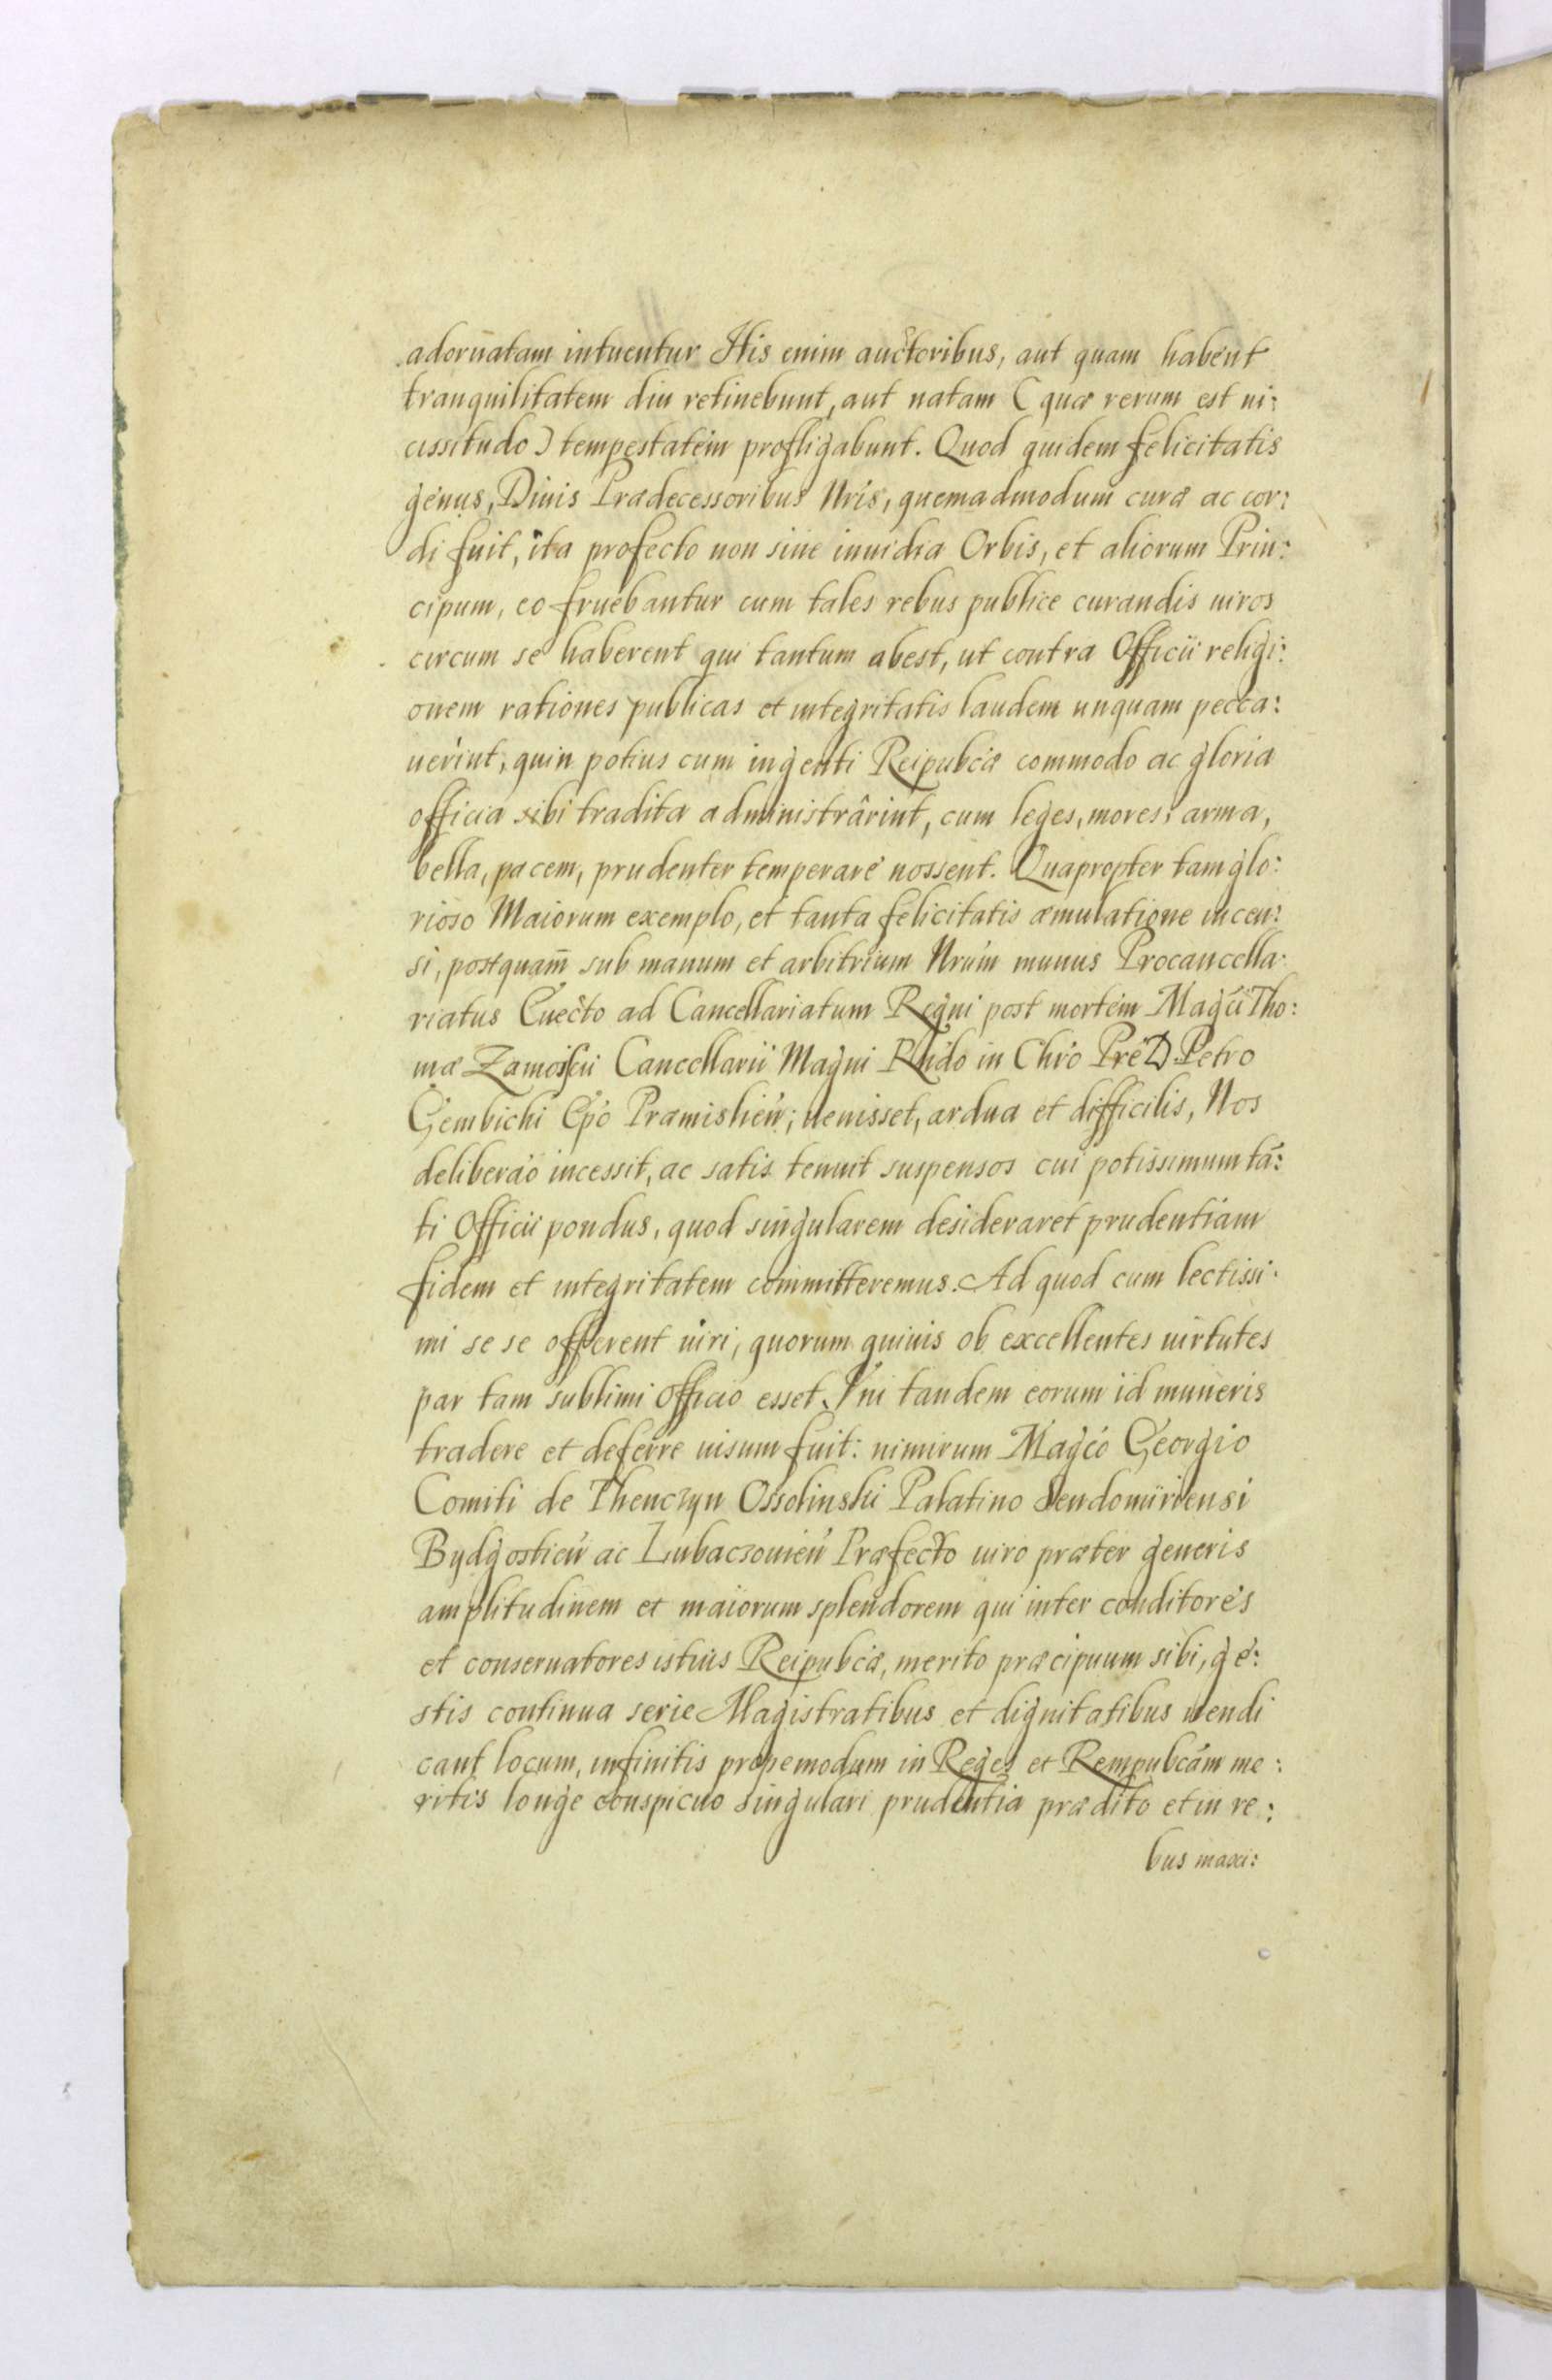 adornatam intuentur His enim auctoribus, aut quam habent
tranquilitatem diu retinebunt, aut natam (quæ rerum est ui:
cissitudo) tempestatem profligabunt. Quod quidem felicitatis
genus, Diuis Prædecessoribus Nris, quemadmodum curæ ac cor:
di fuit, ita profecto non sine inuidia Orbis, et aliorum Prin:
cipum, eo fruebantur cum tales rebus publice curandis uiros
circum se haberent qui tantum abest, ut contra Officii religi:
onem rationes publicas et integritatis laudem unquam pecca:
uerint, quin potius cum ingenti Reipubcæ commodo ac gloria
officia sibi tradita administrârint, cum leges, mores, arma,
bella, pacem, prudenter temperare nossent. Quapropter tam glo:
rioso Maiorum exemplo, et tanta felicitatis æmulatione incen:
si, postquam̃ sub manum et arbitrium Nrum munus Procancella:
riatus Euecto ad Cancellariatum Regni post mortem Magci Tho:
mæ Zamoiscii Cancellarii Magni Rndo in Chro Pre D. Petro
Gembicki Epo Præmislien; uenisset, ardua et difficilis, Nos
deliberao incessit, ac satis tenuit suspensos cui potissimum tã:
ti Officii pondus, quod singularem desideraret prudentiam
fidem et integritatem committeremus. Ad quod cum lectissi:
mi se se offerent uiri, quorum quiuis ob excellentes uirtutes
par tam sublimi officio esset. Vni tandem eorum id muneris
tradere et deferre uisum fuit: nimirum Magco Georgio
Comiti de Thenczyn Ossolinski Palatino Sendomiriensi
Bydgostien ac Lubaczouien Præfecto uiro præter generis
amplitudinem et maiorum splendorem qui inter conditores
et conseruatores istius Reipubcæ, merito præcipuum sibi, ge:
stis continua serie Magistratibus et dignitatibus uendi
cant locum, infinitis propemodum in Reges et Rempubcam me:
ritis longe conspicuo singulari prudentia prædito et in re:
bus maxi: